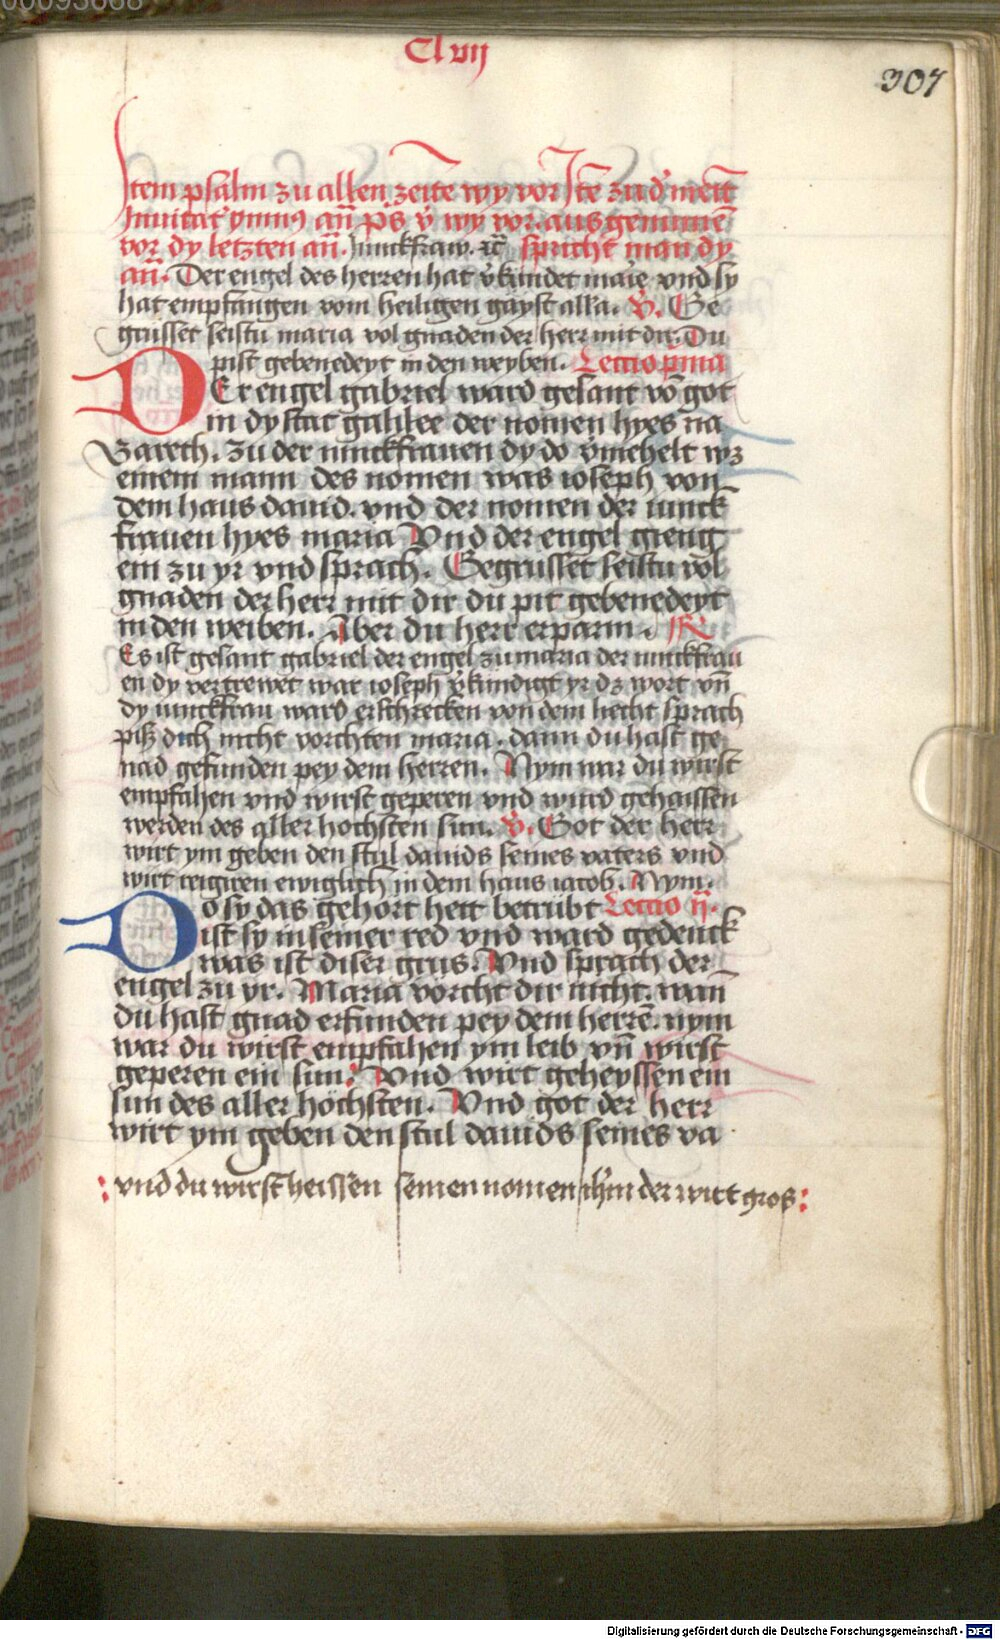 00093668
Cl vij
307
Item psalm zu allen zeite wy vor Ite zu d' metē
Inuitat' ymnus an̄ ps v̄ wy vor. ausgenumē
vor dy letzten an̄. Junckfraw. ꝛc̄ spricht man dy
an̄. Der engel des herren hat v̄kündet maīe vnd sy
hat empfangen vom heiligen gayst alla. V̄. Ge
grusset seistu maria vol gnaden der herr mit dir. Du
pist gebenedeyt in den weyben. Lectio p̄ma
DEr engel gabriel ward gesant vō got
in dy stat galilee der nomen hyes na
zareth. zu der iunckfrauen dy do v̄mehelt wz
einem mann des nomen was ioseph von
dem haus dauid. vnd der nomen der iunck
frauen hyes maria Vnd der engel gieng
ein zu yr vnd sprach. Gegrusset seistu vol
gnaden der herr mit dir du pit gebenedeyt
in den weiben. Aber du herr erparm. R
Es ist gesant gabriel der engel zu maria der iunckfrau
en dy vertrewet war ioseph v̄kündigt yr dz wort vn̄
dy iunckfrau ward erschrecken von dem liecht sprach
piß dich nicht vorchten maria. dann du hast ge
nad gefunden pey dem herren. Nym war du wirst
empfahen vnd wirst geperen vnd wird gehaissen
werden des aller hochsten sun. V̄. Got der herr
wirt ym geben den stul dauids seines vaters vnd
wirt reigiren ewiglich in dem haus iacob. Nym.
Do sy das gehort hett betrübt Lectio ij.
ist sy in seiner red vnd ward gedenck
was ist diser grus. Vnd sprach der
engel zu yr. Maria vörcht dir nicht. wan̄
du hast gnad erfunden pey dem herrē. nym
war du wirst empfahen ym leib vn̄ wirst
geperen ein sun: Vnd wirt geheyssen ein
sun des aller höchsten. Vnd got der herr
wirt ym geben den stul dauids seines va
: vnd du wirst heissen seinen nomen ih'm der wirt gros :
Digitalisierung gefördert durch die Deutsche Forschungsgemeinschaft - DFG